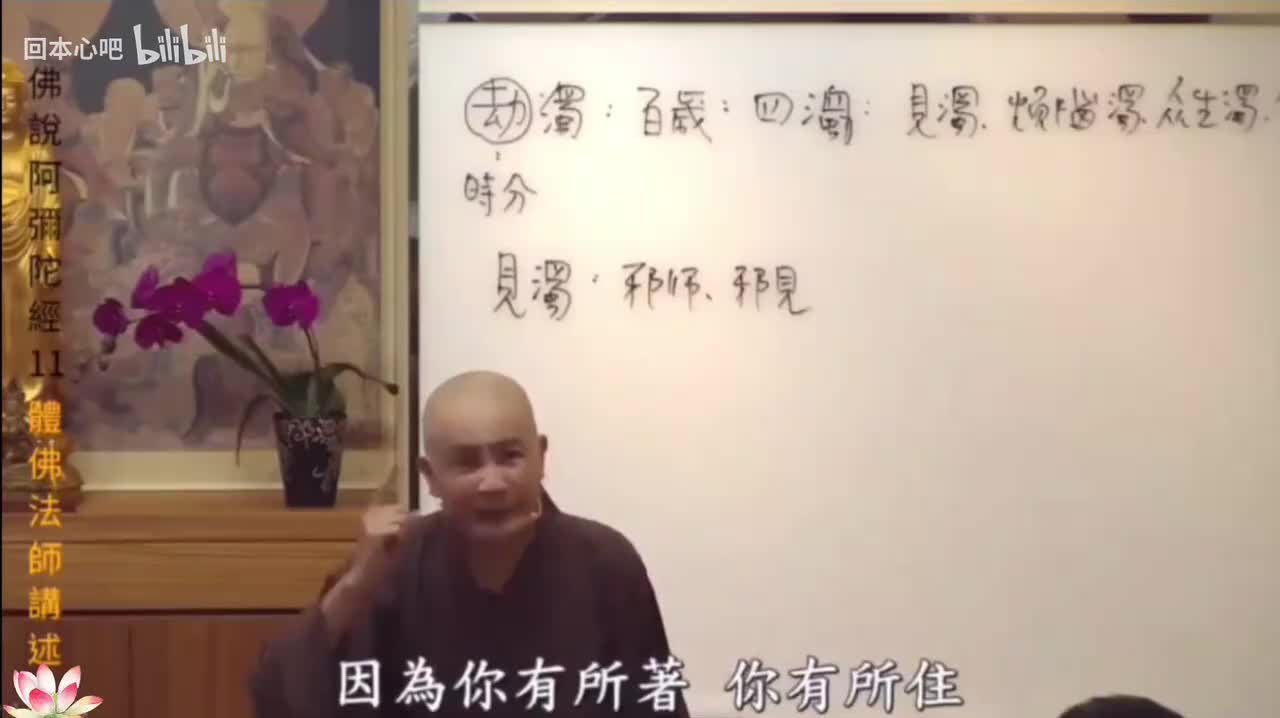 回本心吧 bilibili
佛說阿彌陀經11 體佛法師講述
劫濁：百歲：四濁：見濁、煩惱濁、众生濁、
時分
見濁：邪师、邪見
因為你有所著 你有所住